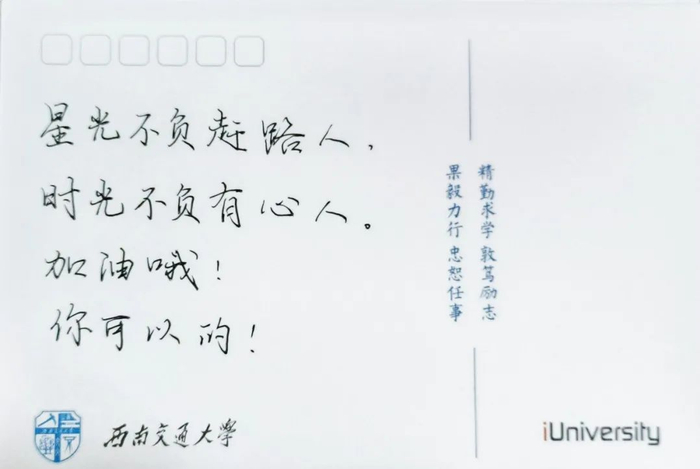 星光不负赶路人，
时光不负有心人。
加油哦！
你可以的！
精勤求学 敦笃励志
果毅力行 忠恕任事
西南交通大学
iUniversity